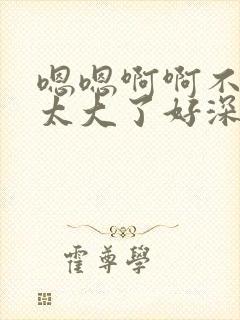 嗯嗯啊啊不
太大了好深
霍尊學